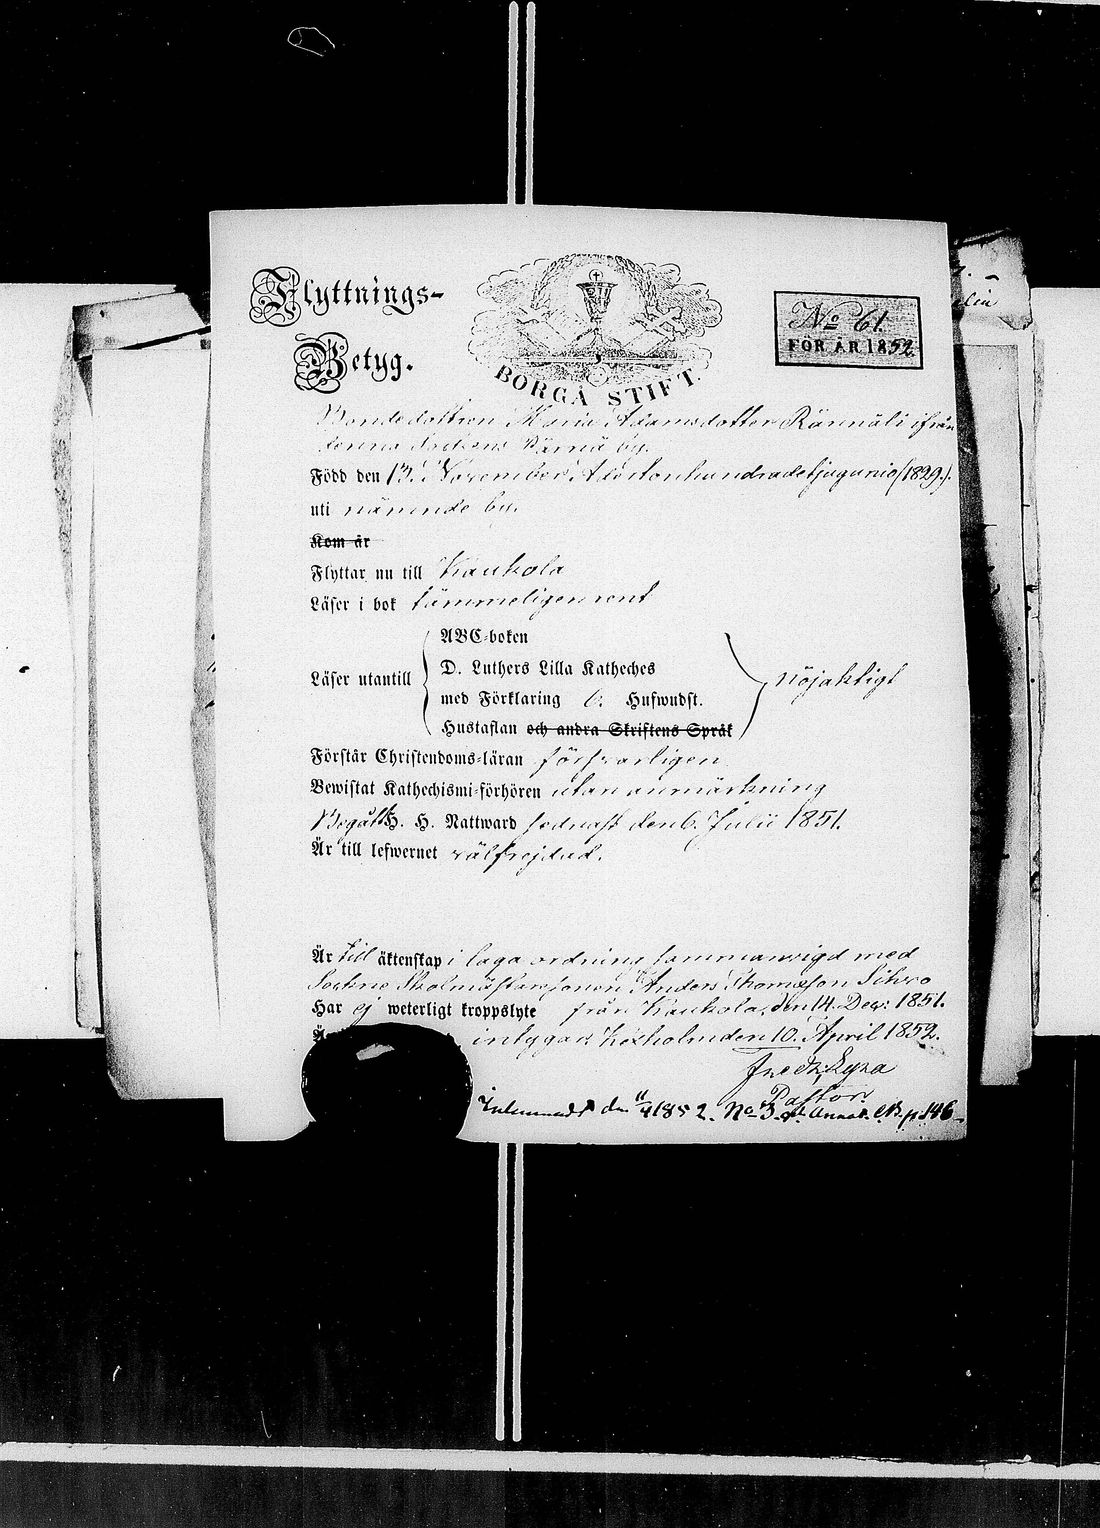 Flyttnings-
Betyg.
BORGÅ STIFT.
No 61.
FÖR ÅR 1852.
Bondedottren Maria Adamsdotter Rännäli ifrån
denna Sockens Kärnä by.
Född den 13. November Adertonhundradetjugunio (1829.).
uti nämnde by.
Kom år
Flyttar nu till Kaukola
Läser i bok tämmeligen rent
Läser utantill
ABC-boken
D. Luthers Lilla Katheches
med Förklaring 6. Hufwudst.
Hustaflan och andra Skriftens Språk
nöjaktigt
Förstår Christendoms-läran försvarligen
Bewistat Kathechismi-förhören utan anmärkning
Begått H. H. Nattward sednast den 6. Julii 1851.
Är till lefwernet välfrejdad.
Är till äktenskap i laga ordning sammanvigd med
Sockne Skolmästaresonen Anders Thomasson Sihvo
Har ej weterligt kroppslyte från Kaukola, den 14. Dec: 1851.
intygar Kexholm den 10. April 1852.
Pastor.
den 11/4 1852. No 3. p. 146